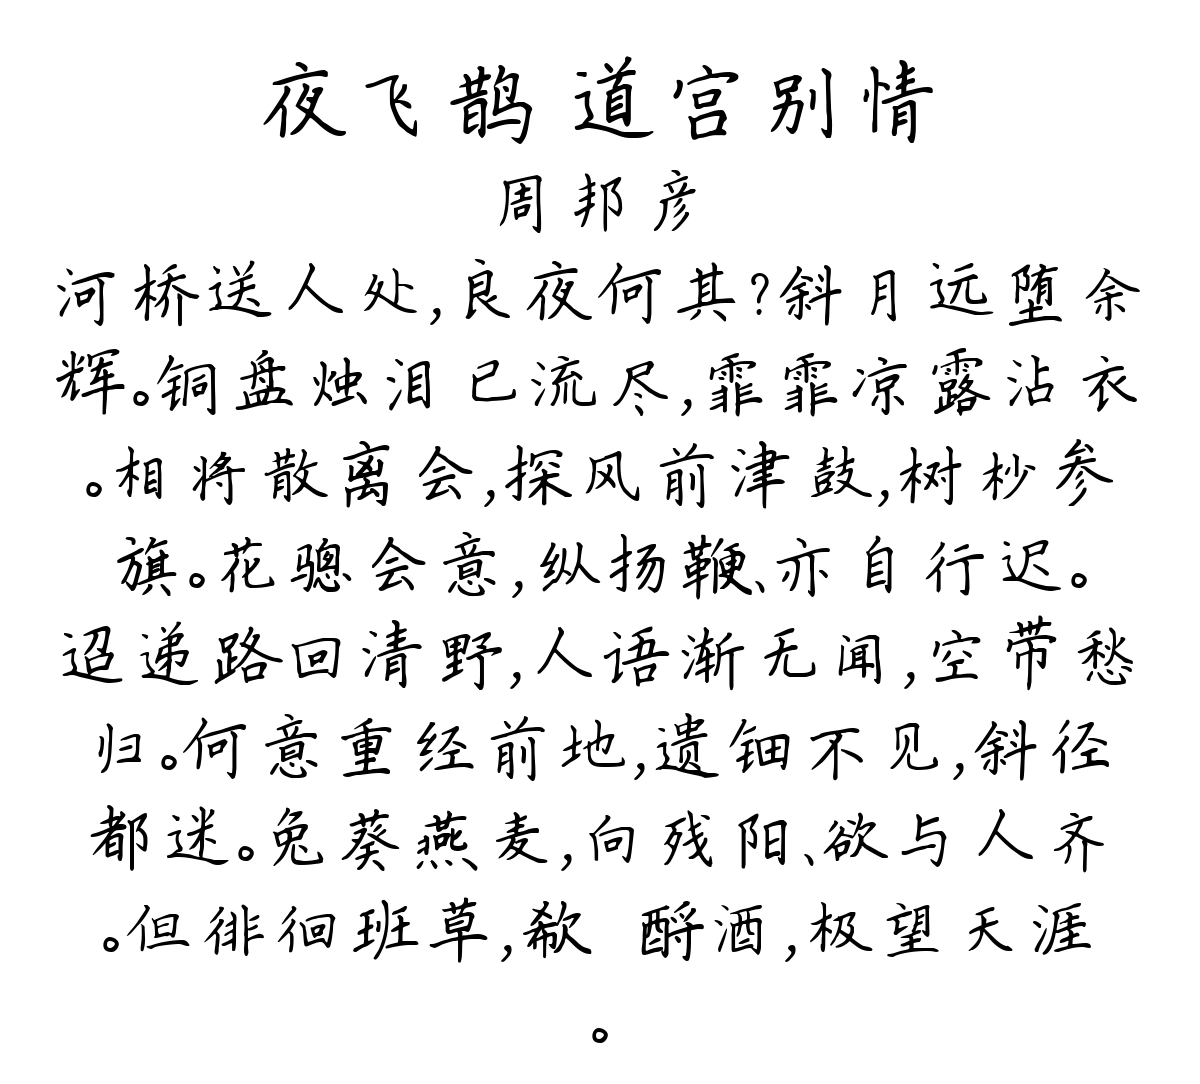 夜飞鹊 道宫别情
周邦彦
河桥送人处,良夜何其?斜月远堕余
辉。铜盘烛泪已流尽,霏霏凉露沾衣
。相将散离会,探风前津鼓,树杪参
旗。花骢会意,纵扬鞭、亦自行迟。
迢递路回清野,人语渐无闻,空带愁
归。何意重经前地,遗钿不见,斜径
都迷。兔葵燕麦,向残阳、欲与人齐
。但徘徊班草,欷 酹酒,极望天涯
。